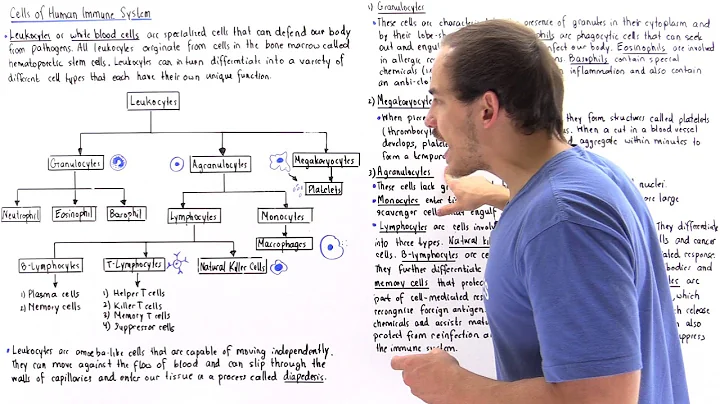 Cells of Human Immune System
• Leukocytes or white blood cells are specialized cells that can defend our body
from pathogens. All leukocytes originate from cells in the bone marrow called
hematopoietic stem cells. Leukocytes can in turn differentiate into a variety of
different cell types that each have their own unique function.
Leukocytes
Granulocytes
Agranulocytes
Megakaryocytes
Platelets
Neutrophil
Eosinophil
Basophil
Lymphocytes
Monocytes
Macrophages
B-Lymphocytes
T-Lymphocytes
Natural Killer Cells
1) Plasma cells
2) Memory cells
1) Helper T cells
2) Killer T cells
3) Memory T cells
4) Suppressor cells
• Leukocytes are amoeba-like cells that are capable of moving independently.
They can move against the flow of blood and can slip through the
walls of capillaries and enter our tissue in a process called diapedesis.
1) Granulocytes
• These cells are presence of granules in their cytoplasm and
by their lobe-sh are phagocytic cells that can seek
out and engulf infect our body. Eosinophils are involved
in allergic re Basophils contain special
chemicals inflammation and also contain
an anti-clo
2) Megakaryocyte
• When they form structures called platelets
(thrombocyt When a cut in a blood vessel
develops, platele aggregate within minutes to
form a tempora
3) Agranulocytes
• These cells lack nuclei.
• Monocytes enter large
scavenger cells that engulf
• Lymphocytes are cells involv They differentiate
into three types. Natural ki lls and cancer
cells. B-lymphocytes are ce ated response.
They further differentiate bodies and
memory cells that protec are
part of cell-mediated res , which
recognize foreign antigen release
chemicals and assists also
protect from reinfection a suppress
the immune system.